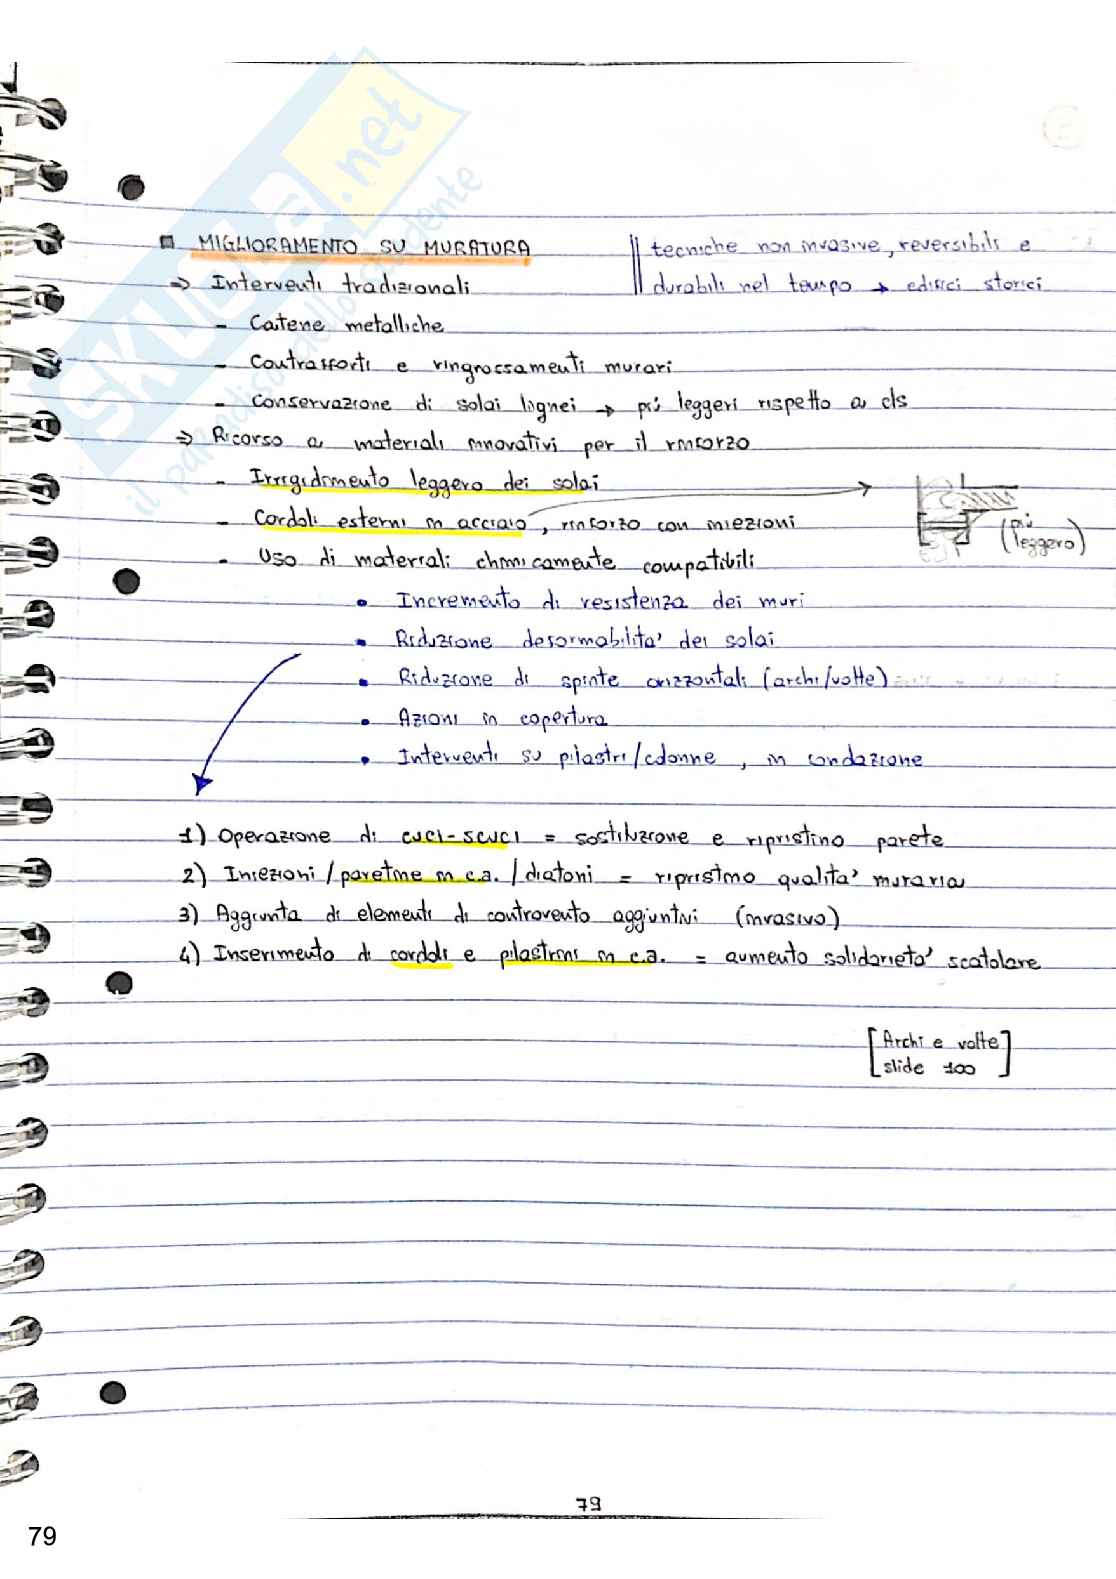 SKUOLA.net
il paradiso dello studente
MIGLIORAMENTO SU MURATURA
tecniche non invasive, reversibili e
durabili nel tempo → edifici storici
⇒ Interventi tradizionali
- Catene metalliche
- Contrafforti e ringrossamenti murari
- Conservazione di solai lignei → più leggeri rispetto a cls
⇒ Ricorso a materiali innovativi per il rinforzo
- Irrigidimento leggero dei solai
- Cordoli esterni in acciaio, rinforzo con iniezioni
(più
leggero)
- Uso di materiali chimicamente compatibili
• Incremento di resistenza dei muri
• Riduzione deformabilita' dei solai
• Riduzione di spinte orizzontali (archi/volte)
• Azioni in copertura
• Interventi su pilastri/colonne, in fondazione
1) Operazione di cuci-scuci = sostituzione e ripristino parete
2) Iniezioni / paretine in c.a. / diatoni = ripristino qualita' muraria
3) Aggiunta di elementi di controvento aggiuntivi (invasivo)
4) Inserimento di cordoli e pilastrini in c.a. = aumento solidarieta' scatolare
[Archi e volte
slide 100]
79
79